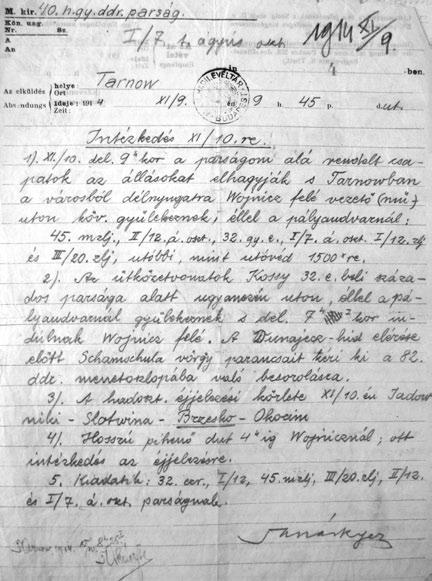 M. kir. 40. h. gy. ddr. parság.
Kön. ung.
Nr. Sz.
A
An
I/7. t. ágyús oszt. 1914 XI/9.
in
ben.
Az elküldés helye: Tarnow
Ort
Absendungs Ideje: 1914 XI/9. én 9 h. 45 p. d.ut.
Zeit:
Intézkedés XI/10. re.
1). XI./10. del. 9h kor a parságom alá rendelt csa-
patok az állásokat elhagyják s Tarnowban
a városból délnyugatra Wojnicz felé vezető (mű)
uton köv. gyülekeznek, éllel a pályaudvarnál:
45. mzlj., II/12. á. oszt., 32. gy. e., I/7. á. oszt. I/12. zlj
és III/20. zlj., utóbbi, mint utóvéd 1500x re.
2). Az ütközetvonatok Kossy 32. e. beli száza-
dos parsága alatt ugyanezen uton, éllel a pá-
lyaudvarnál gyülekeznek s del. 7h kor in-
dulnak Wojnicz felé. A Dunajecz-hid elérése
előtt Schamschula vőrgy parancsait kéri ki a 82.
ddr. menetoszlopába való besorolásra.
3). A hadoszt. éjjelezési körlete XI/10. én Jadow
niki - Slotwina - Brzesko - Okocim
4). Hosszú pihenő dut 4h ig Wojnicznál; ott
intézkedés az éjjelezésre.
5. Kiadatik: 32. ezr., I/12, 45. mzlj, III/20. zlj, II/12.
és I/7. á. oszt. parságnak.